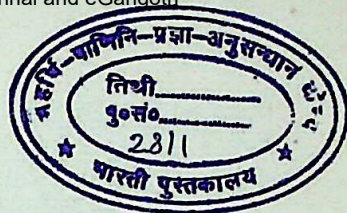 nai and eGangotri
महर्षि-पाणिनि-प्रज्ञा-अनुसन्धान
तिथी
पु०सं०
2811
भारती पुस्तकालय